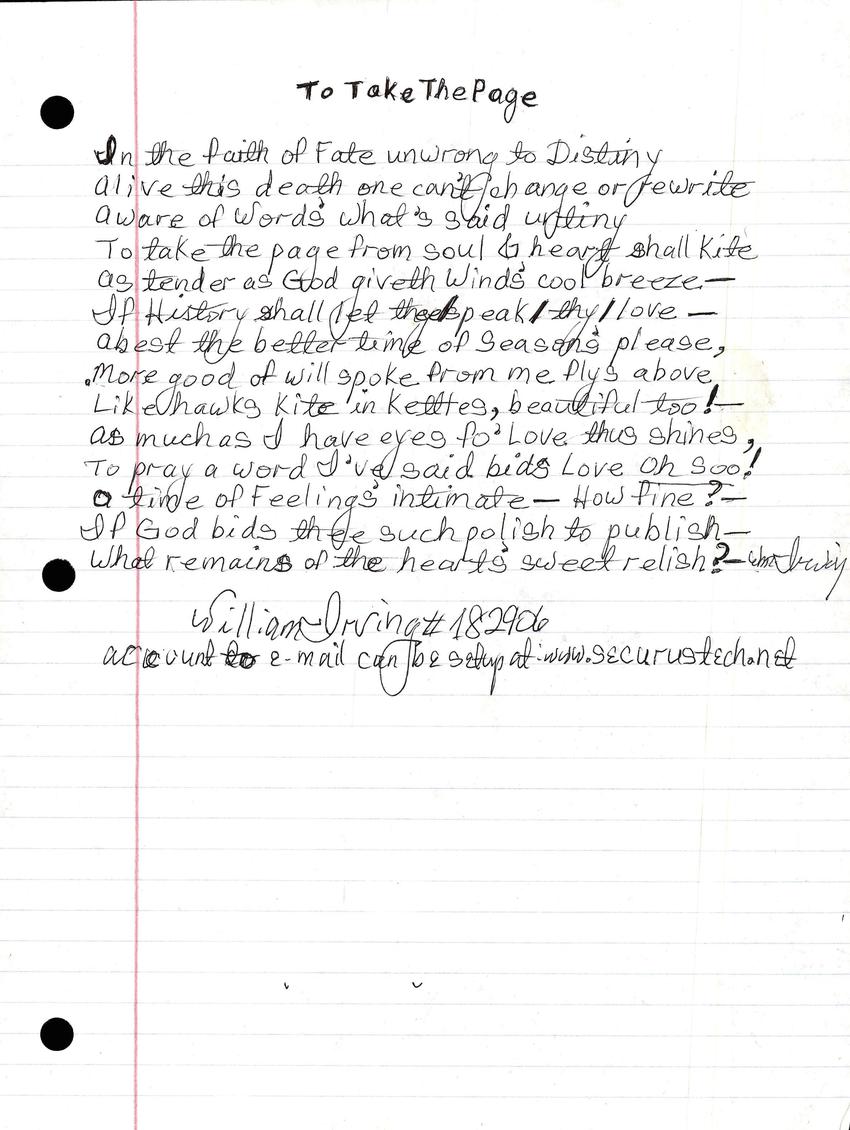 To Take The Page
In the faith of Fate unwrong to Distiny
alive this death one can't change or rewrite
aware of Words what's said untiny
To take the page from soul & heart shall Kite
as tender as God giveth Winds' cool breeze—
If History shall let thee speak / thy / love —
abest the better time of Seasons' please,
More good of will spoke from me flys above
Like hawks Kite in Kettles, beautiful too!—
as much as I have eyes fo' Love thus shines,
To pray a word I've said bids Love Oh Soo!
a time of Feelings' intimate — How fine?—
If God bids thee such polish to publish—
What remains of the heart's sweet relish?— Wm Irving
William Irving # 182906
account to e-mail can be setup at: www.securustech.net